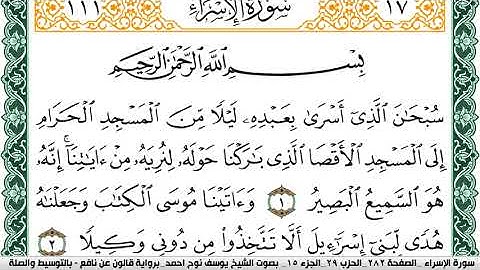 ١٧ سُورَةُ الإِسْرَاءِ ١١١
بِسْمِ اللَّهِ الرَّحْمَٰنِ الرَّحِيمِ
سُبْحَٰنَ اَلَّذِے أَسْرَىٰ بِعَبْدِهِۦ لَيْلًا مِّنَ اَلْمَسْجِدِ اِلْحَرَامِ
إِلَى اَلْمَسْجِدِ اِلْأَقْصَا اَلَّذِے بَٰرَكْنَا حَوْلَهُۥ لِنُرِيَهُۥ مِنْ ءَايَٰتِنَا إِنَّهُۥ
هُوَ اَلسَّمِيعُ اُلْبَصِيرُ ١ وَءَاتَيْنَا مُوسَى اَلْكِتَٰبَ وَجَعَلْنَٰهُ
هُدًى لِّبَنِے إِسْرَآءِيلَ أَلَّا تَتَّخِذُواْ مِن دُونِے وَكِيلًا ٢
سورة الإسراء _الصفحة ٢٨٢_ الحزب ٢٩_الجزء ١٥_ بصوت الشيخ يوسف نوح احمد_ برواية قالون عن نافع - بالتوسيط والصلة